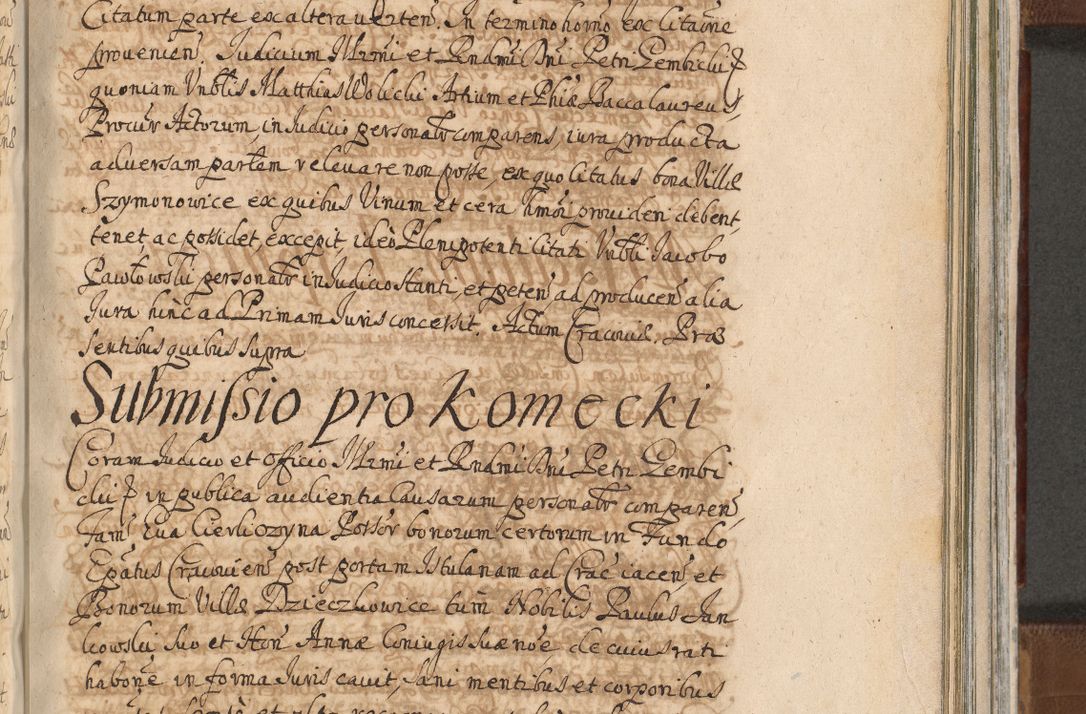 Citatum parte ex altera verten̄. In termino homo ex Citaōne
provenien̄. Judicium Illrmi et Rndmi Dni Petri Gembicki ꝑ
quoniam Vnblis Matthias Wolicki Artium et Phiæ Baccalaureus,
Procur Actorum in Judicio personalr comparens, iura producta
adversam partem relevare non posse, ex quo Citatus bona Villæ
Szymonowice ex quibus Vinum et cera hmoi provideri debent,
tenet, ac possidet, excepit, ideò Plenipotenti Citati Vnbli Jacobo
Pawłowski personalr in Judicio stanti, et peten̄ ad producen̄ alia
Jura hinc ad Primam Juris concessit. Actum Cracoviæ, Præ
sentibus quibus supra
Submissio pro Komecki
Coram Judicio et Officio Illrmi et Rndmi Dni Petri Gembi
cki ꝑ in publica audientia Causarum personalr comparen̄,
Fam̄ Eva Cierliczyna Possor bonorum certorum in Fundo
Epatus Cracovien̄ post portam Istulanam ad Crac̄ iacen̄ et
Bonorum Villæ Dzieczkowice tum Nobilis Paulus Jan
kowski suo et Hon̄ Annæ Coniugis suæ noe de cuius rati
habone in forma Juris cavit, sani mentibus et corporibus